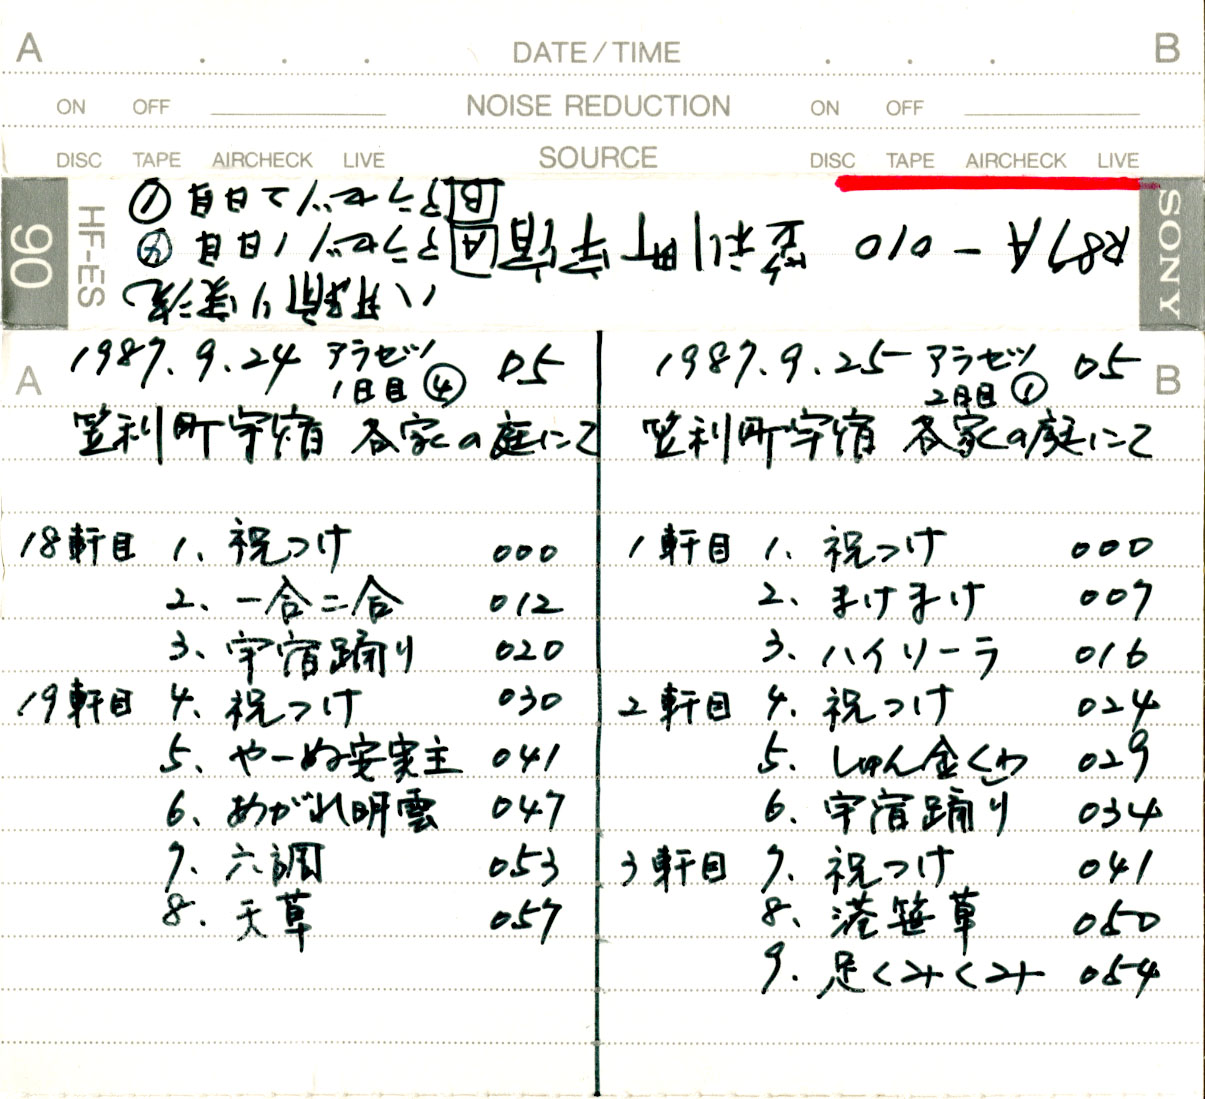 A . . . DATE/TIME . . . B
ON OFF NOISE REDUCTION ON OFF
DISC TAPE AIRCHECK LIVE SOURCE DISC TAPE AIRCHECK LIVE
SONY
R87A-010 笠利町宇宿
八月踊り実況
A アラセツ1日目 ④
B アラセツ2日目 ①
HF-ES
90
A 1987.9.24 アラセツ 05
1日目 ④
笠利町宇宿 各家の庭にて
18軒目 1. 祝つけ 000
2. 一合二合 012
3. 宇宿踊り 020
19軒目 4. 祝つけ 030
5. やーぬ安実主 041
6. あがれ明雲 047
7. 六調 053
8. 天草 057
B 1987.9.25 アラセツ 05
2日目 ①
笠利町宇宿 各家の庭にて
1軒目 1. 祝つけ 000
2. まけまけ 007
3. ハイソーラ 016
2軒目 4. 祝つけ 024
5. しゅん金くゎ 029
6. 宇宿踊り 034
3軒目 7. 祝つけ 041
8. 港笹草 050
9. 足くみくみ 054